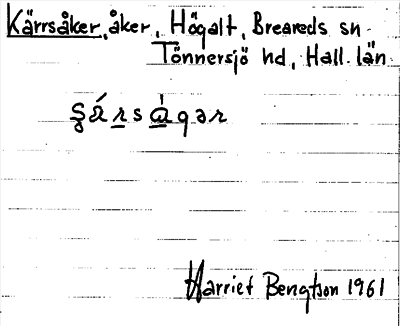 Kärrsåker, åker, Högalt, Breareds sn
Tönnersjö hd, Hall. län
ʂá̈ɹsȧ̀gəɹ
Harriet Bengtson 1961